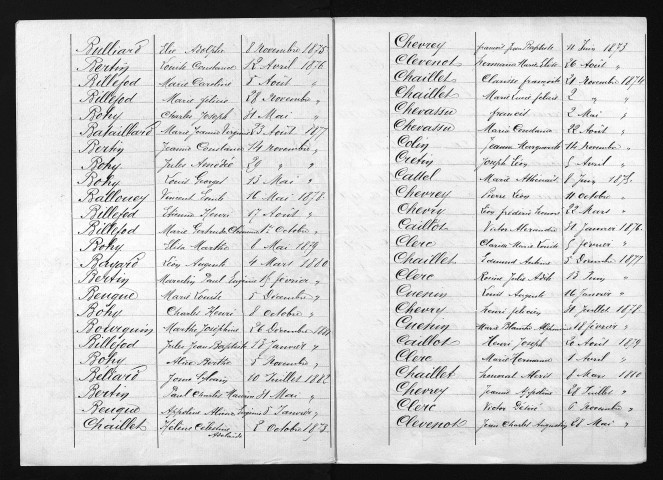 Bulliard Elie Adolphe 8 Novembre 1875
Bertin Louis Constance 12 Avril 1876
Billéfod Marie Caroline 5 Août "
Billéfod Marie félicie 28 Novembre "
Bohy Charles Joseph 31 Mai "
Bataillard Marie Jeanne Virginie 23 Août 1877
Bertin Jeanne Constance 14 novembre "
Bohy Jules Amédée 28 " "
Bohy Louis Georges 13 Mai "
Ballouey Vincent Louis 16 Mai 1878
Billéfod Etienne Henri 17 Août "
Billefod Marie Gertrude Octobre "
Bohy Elisa Marthe 8 Mai 1879
Bayard Léon Auguste 4 Mars 1880
Bertin Marcelin Paul Eugène 19 février "
Beuque Marie Louise 5 Décembre "
Bohy Charles Henri 8 Octobre "
Bourquin Marthe Joséphine 26 Décembre 1881
Billéfod Jules Jean Baptiste 18 Janvier "
Bohy Alice Berthe 5 Novembre "
Béliard Sylvain 10 Juillet 1882
Bertin Paul Charles Maurice 31 Mai "
Beuque Appoline Eugénie 5 Janvier "
Chaillet Hélène Célestine Adelaïde 2 Octobre 1873
Chevrey françois Jean Baptiste 11 Juin 1873
Clevenot Hermance Marie Elise 26 Août "
Chaillet Clarisse françoise 21 Novembre 1874
Chaillet Marie Louise félicie 2 " "
Chevassu francis 2 Mai "
Chevassu Marie Constance 22 Août "
Colin Jeanne Marguerite 14 novembre "
Cretin Joseph Léon 5 Avril "
Cattel Marie Athénaïs 8 Juin 1875
Chevrey Pierre Léon 11 Octobre "
Chevry Léon frédéric 22 Mars "
Caillot Victor Alexandre 31 Janvier 1876
Clerc Claude Marie Louise 5 février "
Chaillet Edmond 5 Décembre 1877
Clerc Jules 13 Juin "
Cuenin Louis Auguste 16 Janvier "
Chevry Henri félicien 31 Juillet 1878
Cuenin Marie Blanche 18 février "
Caillot Henri Joseph 20 Août 1879
Clerc Marie Hermance 1 Avril "
Chaillet Alexis 8 Mars 1880
Chevrey Jeanne Appoline 28 Juillet "
Clerc Victor Désiré 6 Novembre "
Clevenot Jean Charles Augustin 28 Mai "